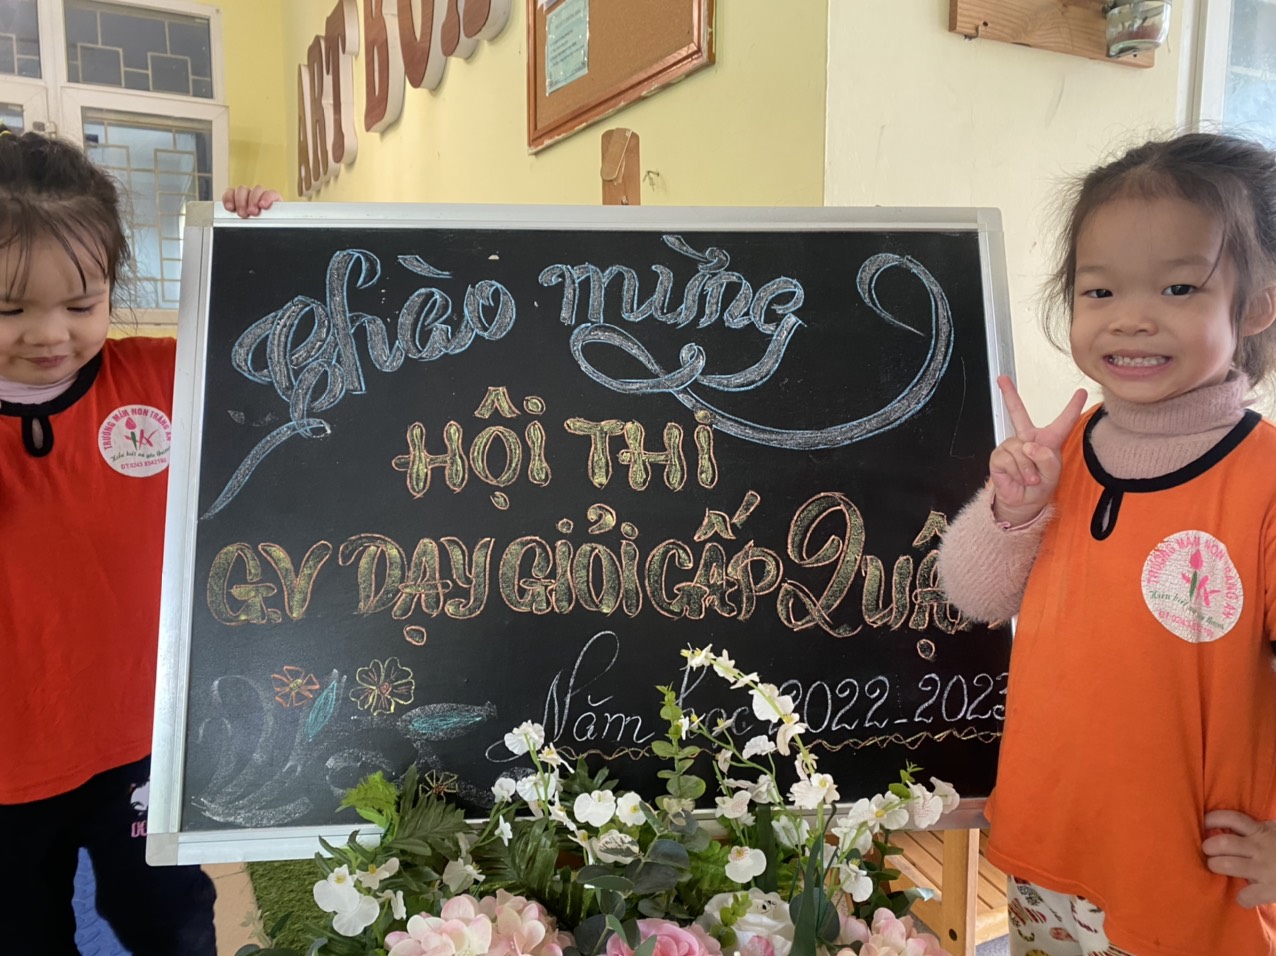 ART
Chào mừng
HỘI THI
GV DẠY GIỎI CẤP QUẬ
Năm học 2022-2023
TRƯỜNG MẦM NON TRÀNG AN
TRƯỜNG MẦM NON TRÀNG AN